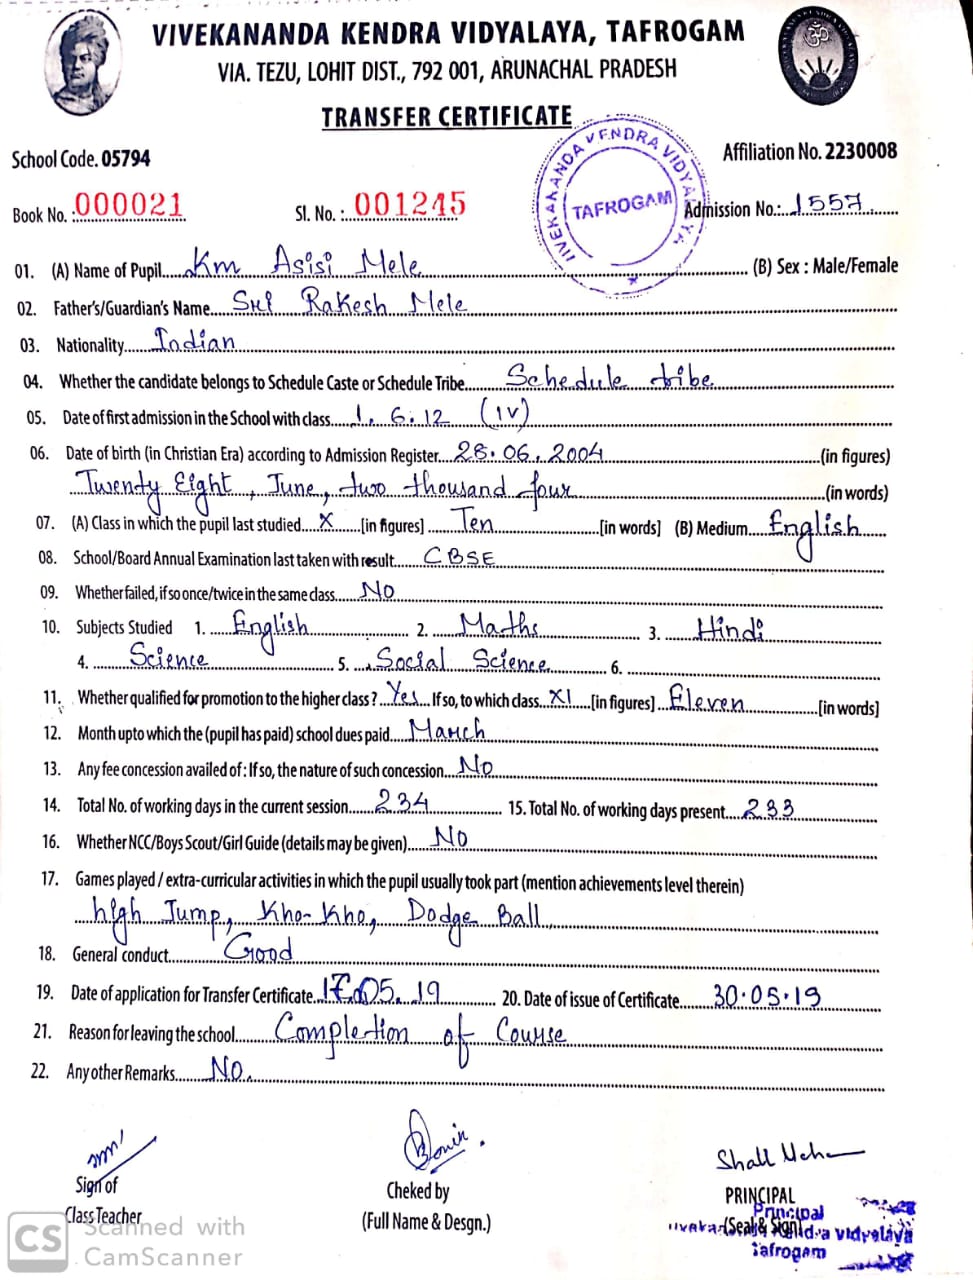 VIVEKANANDA KENDRA VIDYALAYA, TAFROGAM
VIA. TEZU, LOHIT DIST., 792 001, ARUNACHAL PRADESH
TRANSFER CERTIFICATE
School Code. 05794
Affiliation No. 2230008
VIVEKANANDA KENDRA VIDYALAYA
TAFROGAM
Book No. : 000021 Sl. No. : 001245 Admission No.: 1557
01. (A) Name of Pupil Km Asisi Mele (B) Sex : Male/Female
02. Father's/Guardian's Name Sri Rakesh Mele
03. Nationality Indian
04. Whether the candidate belongs to Schedule Caste or Schedule Tribe Schedule tribe
05. Date of first admission in the School with class 1. 6. 12 (IV)
06. Date of birth (in Christian Era) according to Admission Register 28.06.2004 (in figures)
Twenty Eight, June, two thousand four (in words)
07. (A) Class in which the pupil last studied X [in figures] Ten [in words] (B) Medium English
08. School/Board Annual Examination last taken with result CBSE
09. Whether failed, if so once/twice in the same class No
10. Subjects Studied 1. English 2. Maths 3. Hindi
4. Science 5. Social Science 6.
11. Whether qualified for promotion to the higher class? Yes If so, to which class XI [in figures] Eleven [in words]
12. Month upto which the (pupil has paid) school dues paid March
13. Any fee concession availed of : If so, the nature of such concession No
14. Total No. of working days in the current session 234 15. Total No. of working days present 233
16. Whether NCC/Boys Scout/Girl Guide (details may be given) No
17. Games played / extra-curricular activities in which the pupil usually took part (mention achievements level therein)
high Jump, Kho-Kho, Dodge Ball
18. General conduct Good
19. Date of application for Transfer Certificate 05.19 20. Date of issue of Certificate 30.05.19
21. Reason for leaving the school Completion of Course
22. Any other Remarks No.
Sign of
Class Teacher
Cheked by
(Full Name & Desgn.)
PRINCIPAL
(Seal & Sign)
Principal
Vidyalaya
Tafrogam
CS Scanned with
CamScanner